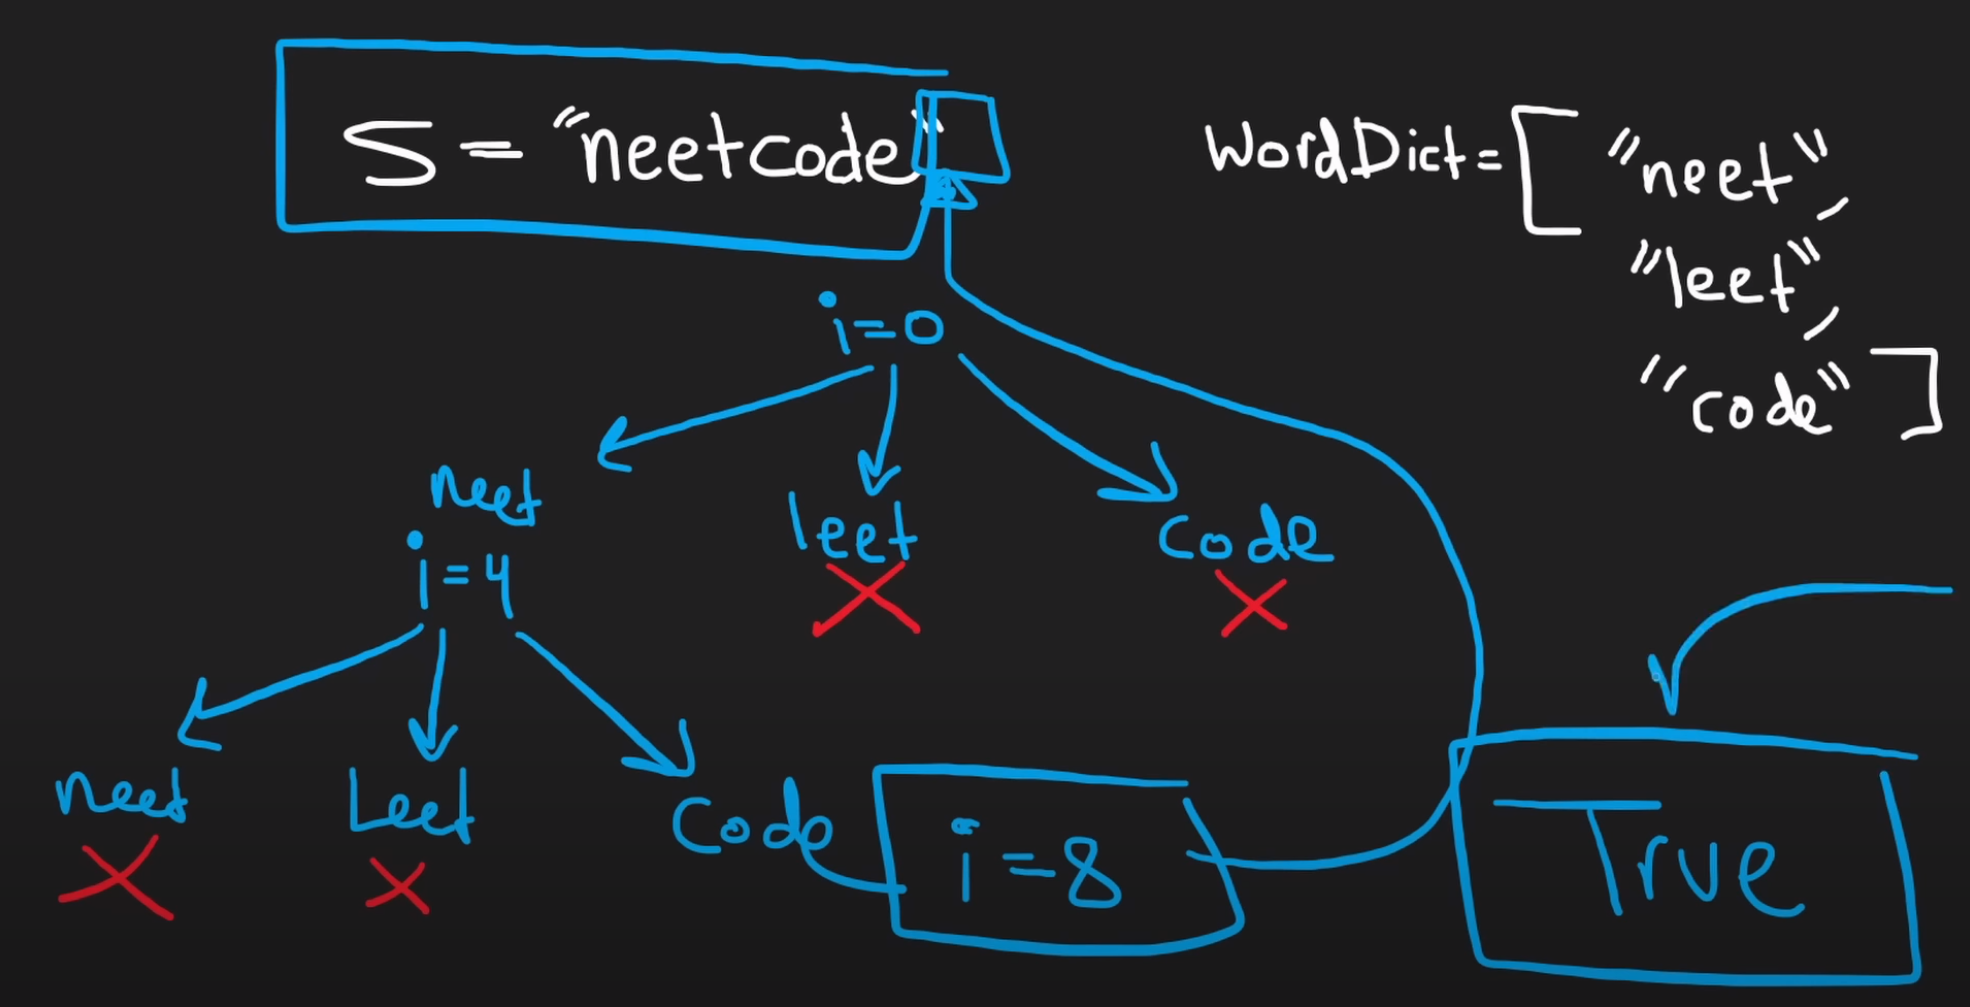 S = "neetcode"
WordDict = [ "neet",
"leet",
"code" ]
i=0
neet
leet
code
i=4
neet
Leet
Code
i=8
True